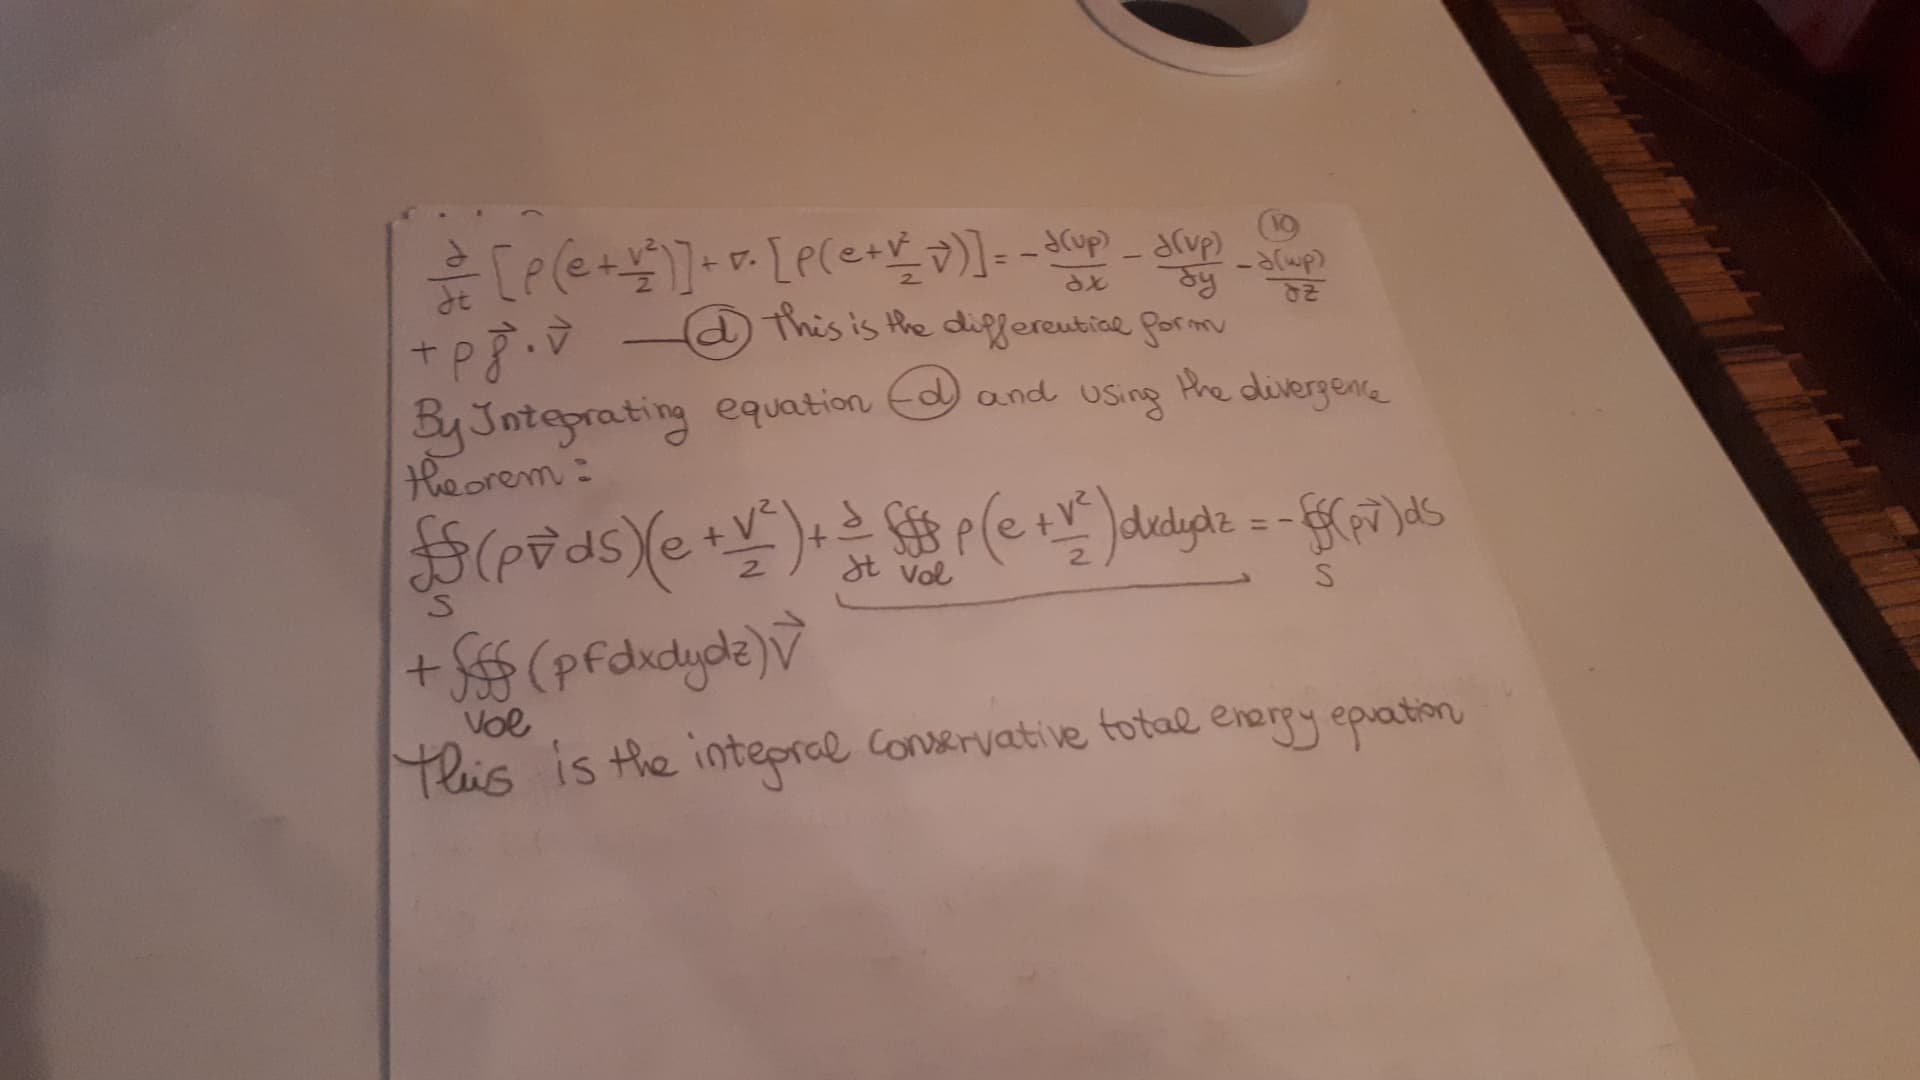 ⑩
∂/∂t [ρ(e+V²/2)] + ∇·[ρ(e+V²/2 V⃗)] = - ∂(up)/∂x - ∂(vp)/∂y - ∂(wp)/∂z
+ ρf⃗·V⃗ —ⓓ This is the differential form
By Integrating equation -ⓓ and using the divergence
theorem:
∯(ρV⃗ds)(e+V²/2) + ∂/∂t ∰ ρ(e+V²/2)dxdydz = - ∯(pV⃗)ds
S Vol S
+ ∰(ρfdxdydz)V⃗
Vol
This is the integral conservative total energy equation